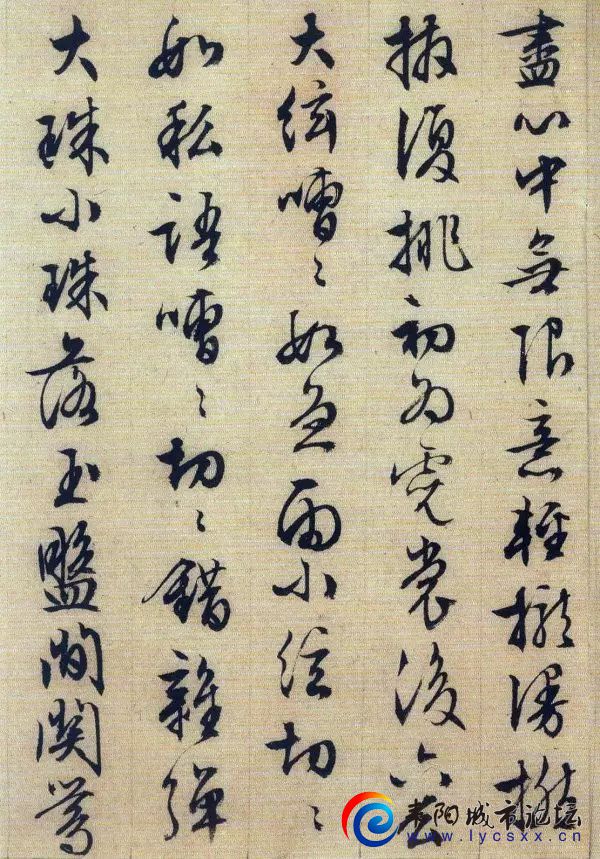 盡心中無限意輕攏漫撚
抹復挑初為霓裳後六幺
大絃嘈〻如急雨小絃切〻
如私語嘈〻切〻錯雜彈
大珠小珠落玉盤間関鶯
耒阳城市论坛
www.lycsxx.cn